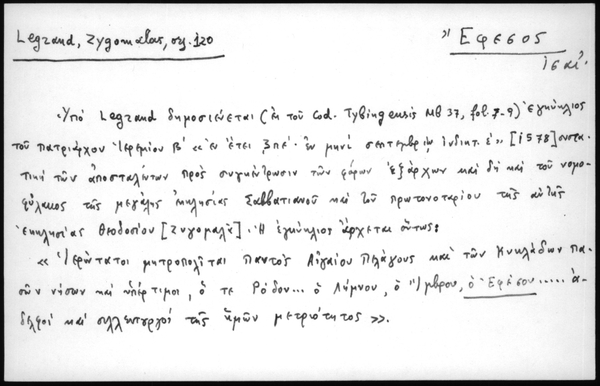 Legrand, Zygomalas, σελ. 120
Ἔφεσος
ις' αἰ.
Ὑπὸ Legrand δημοσιεύεται (ἐκ τοῦ Cod. Tybingensis MB 37, fol. 7-9) ἐγκύκλιος
τοῦ πατριάρχου Ἱερεμίου Β' «ἐν ἔτει ζπζ' ἐν μηνὶ σεπτεμβρίῳ ἰνδικτ. ζ'» [1578] συστα-
τικὴ τῶν ἀποσταλέντων πρὸς συγκέντρωσιν τῶν φόρων ἐξάρχων καὶ δὴ καὶ τοῦ νομο-
φύλακος τῆς μεγάλης ἐκκλησίας Σαββατιανοῦ καὶ τοῦ πρωτονοταρίου τῆς αὐτῆς
ἐκκλησίας Θεοδοσίου [Ζυγομαλᾶ]. Ἡ ἐγκύκλιος ἄρχεται οὕτως:
« Ἱερώτατοι μητροπολῖται παντὸς Αἰγαίου Πελάγους καὶ τῶν Κυκλάδων πα-
σῶν νήσων καὶ ὑπέρτιμοι, ὅ τε Ρόδου... ὁ Λήμνου, ὁ Ἴμβρου, ὁ Ἐφέσου..... ἀ-
δελφοὶ καὶ συλλειτουργοὶ τῆς ἡμῶν μετριότητος ».